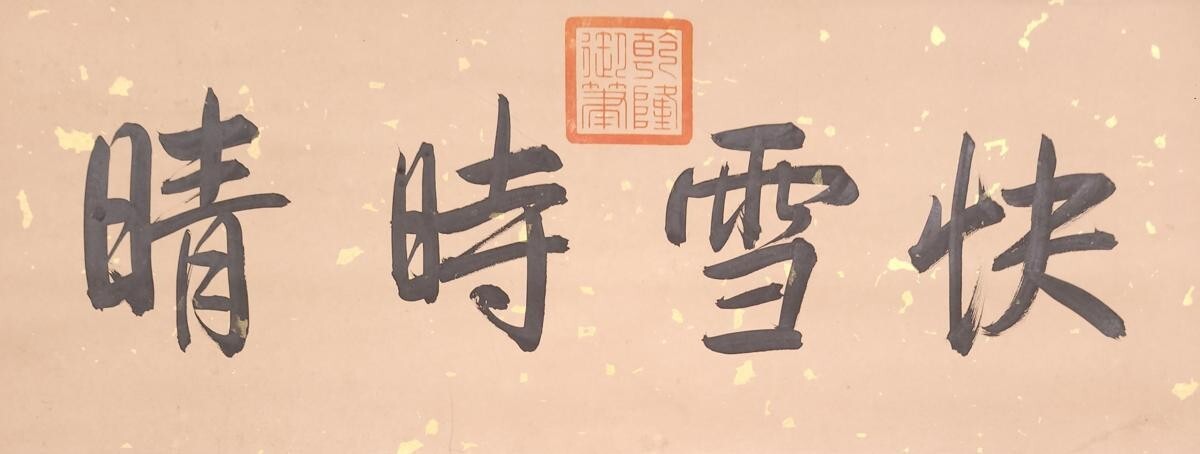 快雪時晴
乾隆
御筆